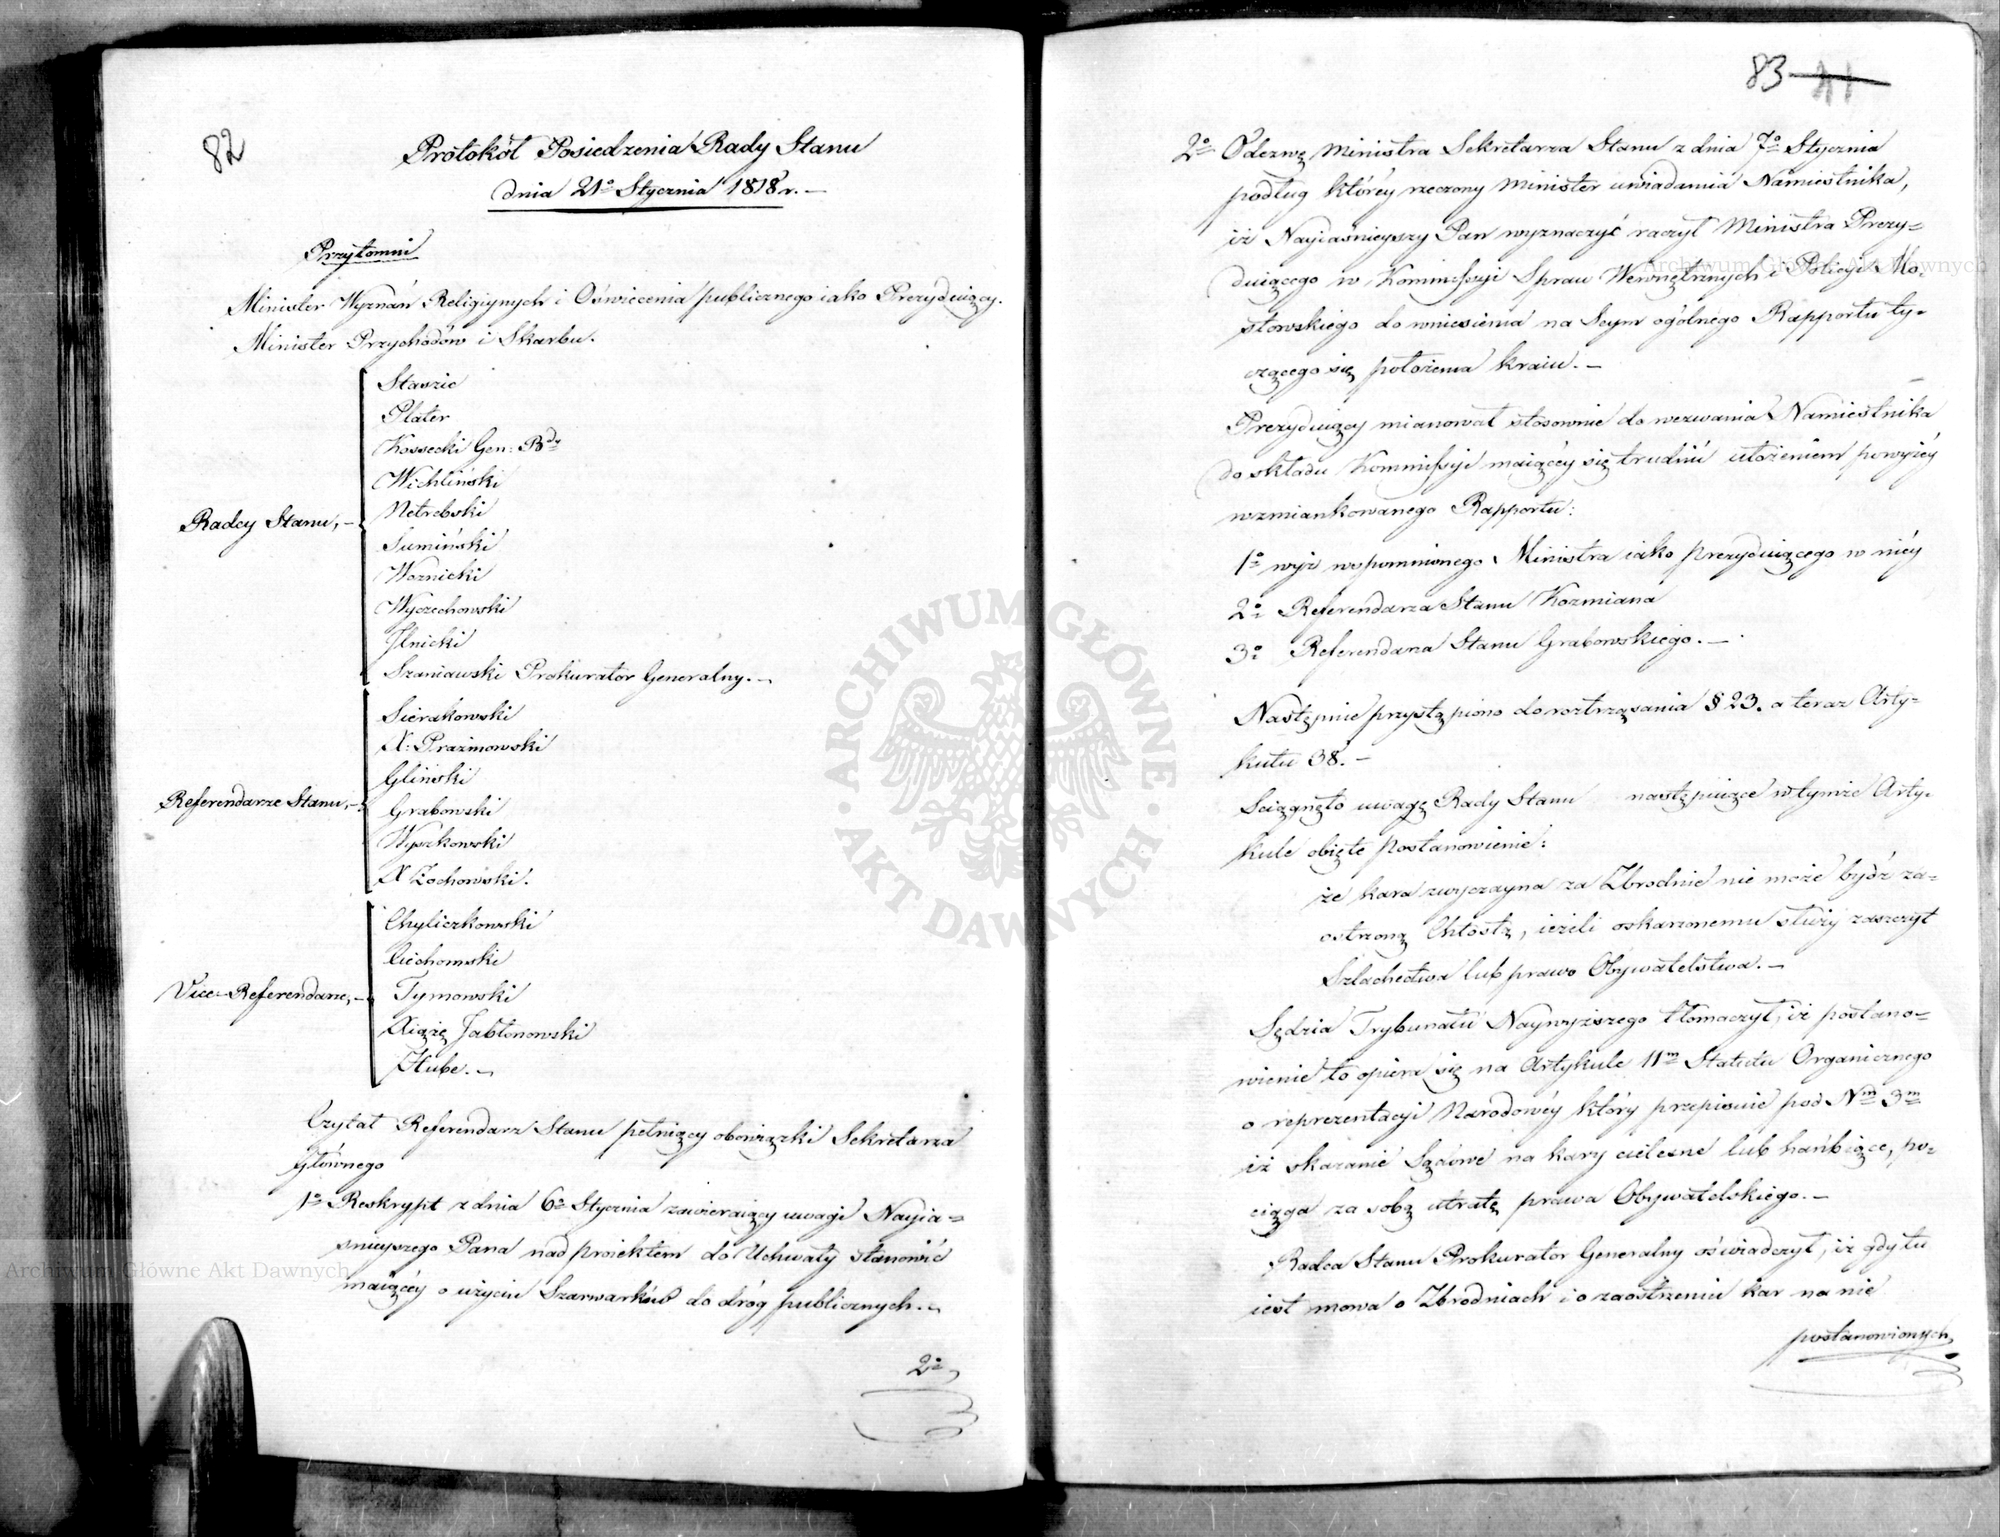 82
Protokół Posiedzenia Rady Stanu
dnia 21º Stycznia 1818 r. —
Przytomni
Minister Wyznań Religijnych i Oświecenia publicznego iako Prezyduiący.
Minister Przychodów i Skarbu.
Radcy Stanu, —
Staszic
Plater
Kossecki Gen: Bdy
Wichliński
Netrebski
Sumiński
Woznicki
Wyczechowski
Ilnicki
Szaniawski Prokurator Generalny. —
Referendarze Stanu, —
Sierakowski
X: Prażmowski
Gliński
Grabowski
Wyszkowski
X Żochowski.
Vice-Referendarze, —
Chyliczkowski
Ciechomski
Tymowski
Xiążę Jabłonowski
Hube. —
Czytał Referendarz Stanu pełniący obowiązki Sekretarza
Głównego
1º Reskrypt z dnia 6º Stycznia zawieraiący uwagi Nayia=
śnieyszego Pana nad proiektem do Uchwały stanowić
maiącéy o użyciu Szarwarków do dróg publicznych. —
2º
83 41
2º Odezwę Ministra Sekretarza Stanu z dnia 7º Stycznia
podług któréy rzeczony Minister uwiadamia Namiestnika,
iż Nayiaśnieyszy Pan wyznaczyć raczył Ministra Prezy=
duiącego w Kommissyi Spraw Wewnętrznych i Policyi Mo=
stowskiego do wniesienia na Seym ogólnego Rapportu ty=
czącego się położenia kraiu. —
Prezyduiący mianował stosownie do wezwania Namiestnika
do składu Kommissyi maiącéy się trudnić ułożeniem powyżéy
wzmiankowanego Rapportu:
1º wyż wspomnionego Ministra iako prezyduiącego w niéy
2º Referendarza Stanu Kozmiana
3º Referendarza Stanu Grabowskiego. —
Następnie przystąpiono do roztrząsania § 23. a teraz Arty=
kułu 38. —
Sciągnęło uwagę Rady Stanu następuiące w tymże Arty=
kule obięte postanowienie:
że kara zwyczayna za Zbrodnie nie może bydź za=
ostrzoną Chłostą, ieżeli oskarżonemu służy zaszczyt
Szlachectwa lub prawo Obywatelstwa. —
Sędzia Trybunału Naywyższego tłomaczył, iż postano=
wienie to opiera się na Artykule 11m Statutu Organicznego
o reprezentacyi Narodowéy który przepisuie pod Nm 3m
iż skazanie Sądowe na kary cielesne lub hańbiące, po=
ciąga za sobą utratę prawa Obywatelskiego. —
Radca Stanu Prokurator Generalny oświadczył, iż gdy tu
iest mowa o Zbrodniach i o zaostrzeniu kar na nie
postanowionych,
ARCHIWUM GŁÓWNE · AKT DAWNYCH ·
Archiwum Główne Akt Dawnych
Archiwum Główne Akt Dawnych